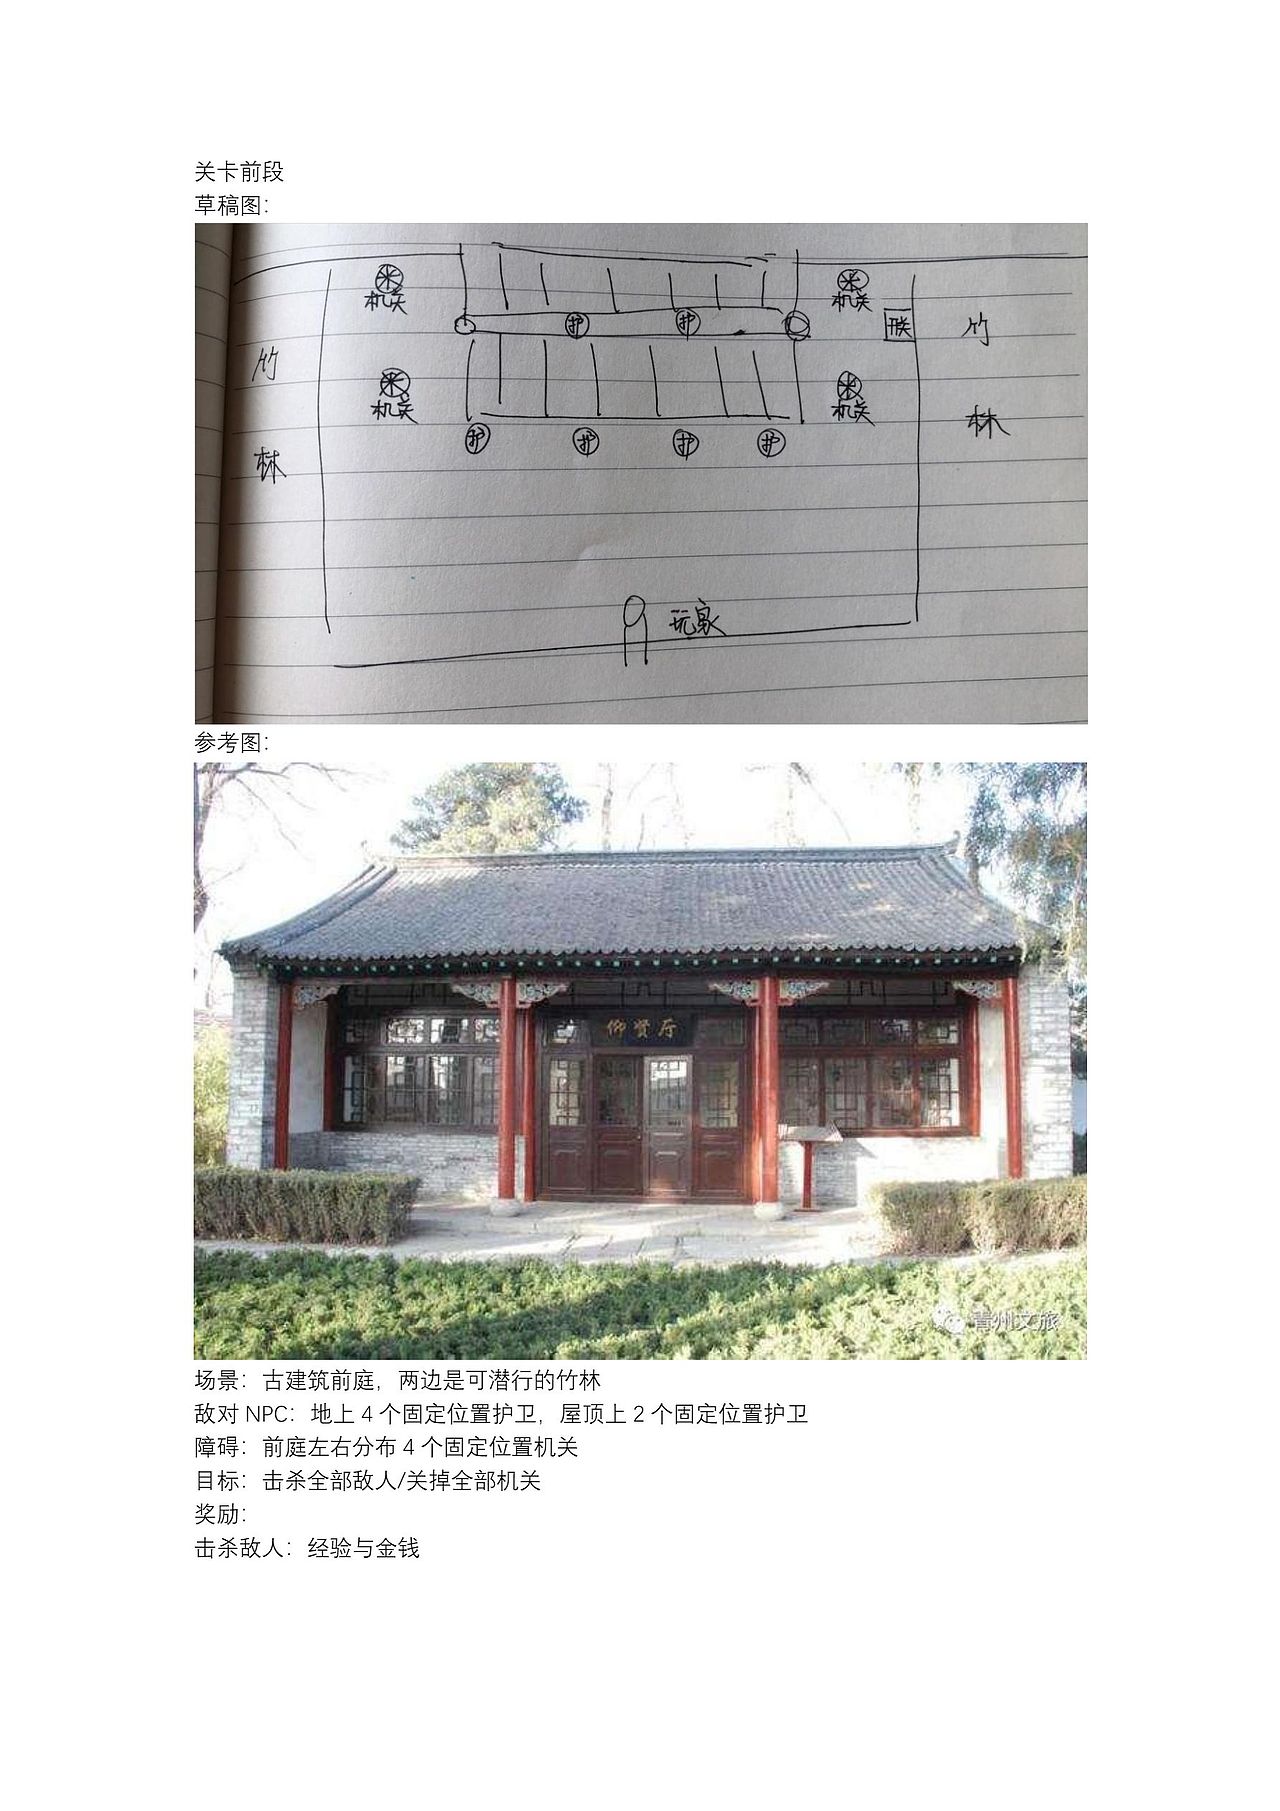 关卡前段
草稿图：
机关
机关
护
护
开关
竹
竹
机关
机关
林
林
护
护
护
护
玩家
参考图：
仰贤厅
青州文旅
场景：古建筑前庭，两边是可潜行的竹林
敌对 NPC：地上 4 个固定位置护卫，屋顶上 2 个固定位置护卫
障碍：前庭左右分布 4 个固定位置机关
目标：击杀全部敌人/关掉全部机关
奖励：
击杀敌人：经验与金钱